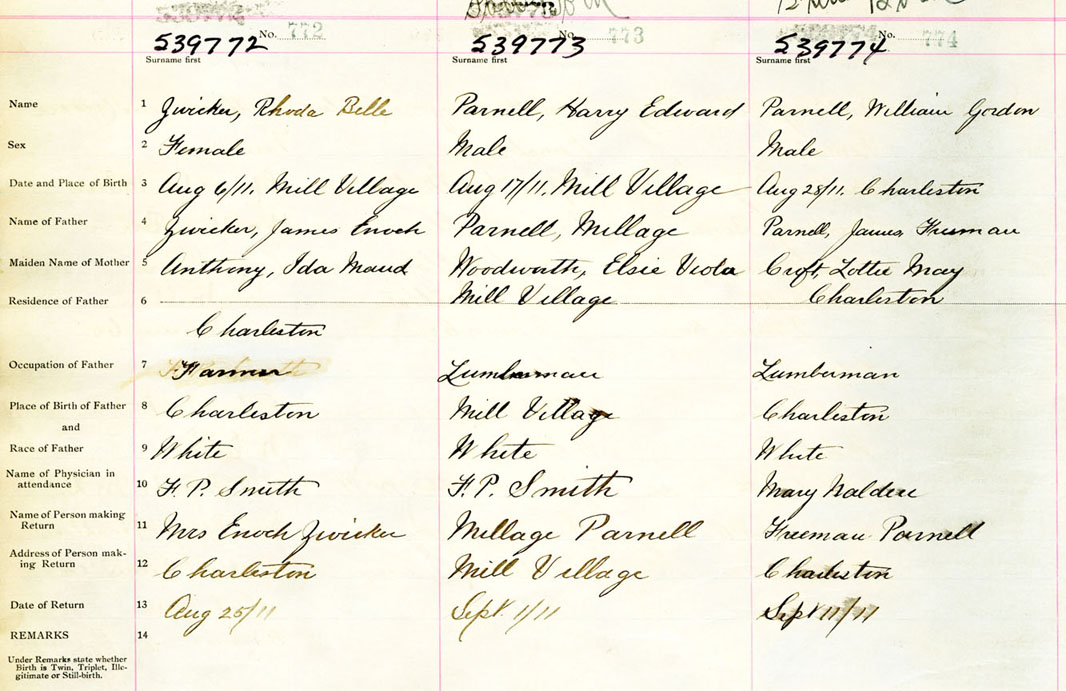 539772 No. 772 539773 No. 773 539774 No. 774
Surname first Surname first Surname first
Name 1 Zwicker, Rhoda Belle Parnell, Harry Edward Parnell, William Gordon
Sex 2 Female Male Male
Date and Place of Birth 3 Aug 6/11. Mill Village Aug 17/11. Mill Village Aug 28/11. Charleston
Name of Father 4 Zwicker, James Enoch Parnell, Millage Parnell, James Freeman
Maiden Name of Mother 5 Anthony, Ida Maud Woodworth, Elsie Viola Croft, Lottie May
Residence of Father 6 Mill Village Charleston
Charleston
Occupation of Father 7 Farmer Lumberman Lumberman
Place of Birth of Father 8 Charleston Mill Village Charleston
and
Race of Father 9 White White White
Name of Physician in
attendance 10 F. P. Smith F. P. Smith Mary
Name of Person making
Return 11 Mrs Enoch Zwicker Millage Parnell Freeman Parnell
Address of Person mak-
ing Return 12 Charleston Mill Village Charleston
Date of Return 13 Aug 25/11 Sept 1/11 Sept 11/11
REMARKS 14
Under Remarks state whether
Birth is Twin, Triplet, Ille-
gitimate or Still-birth.